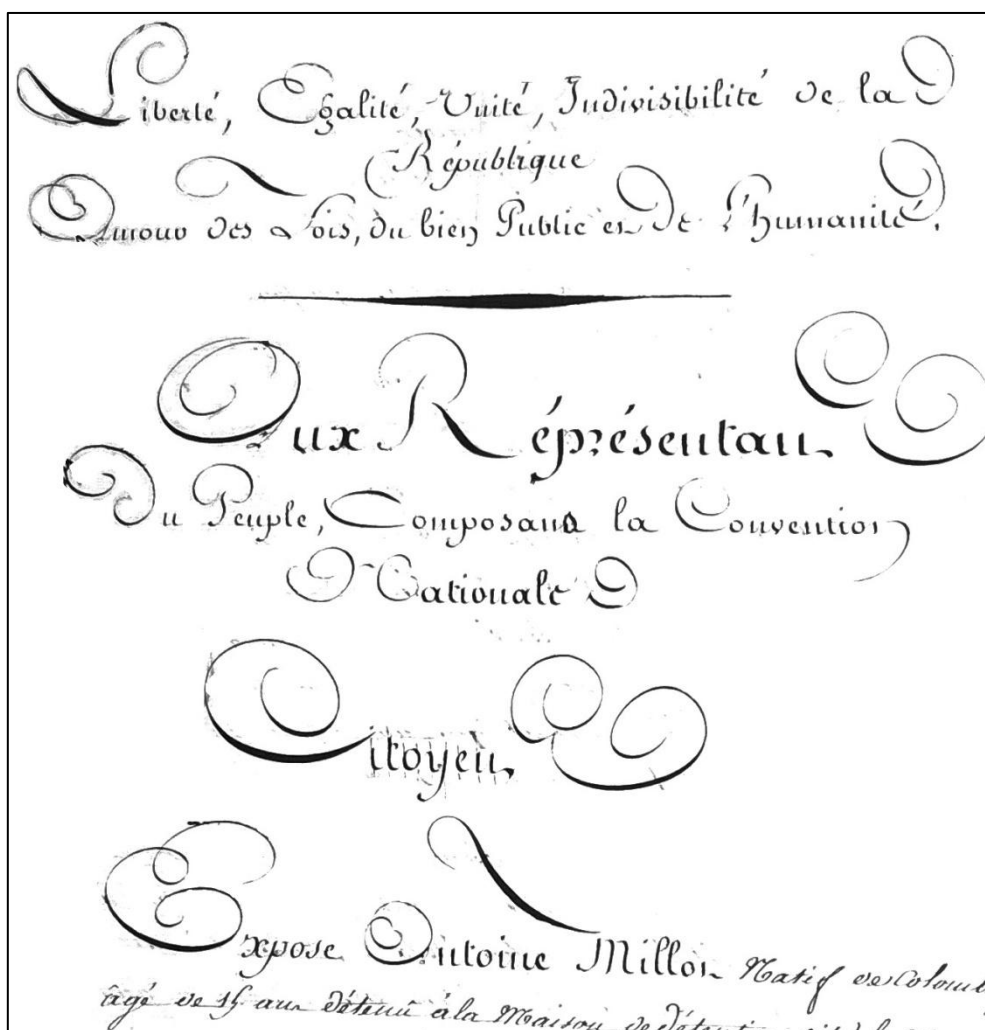 Liberté, Egalité, Unité, Indivisibilité de la
République
Amour des Lois, du bien Public et De L'humanité.
Aux Réprésentans
Du Peuple, Composant la Convention
Nationale
Citoyens
Expose Antoine Millon Natif de Colomb
âgé de 15 ans détenu à la Maison de détention